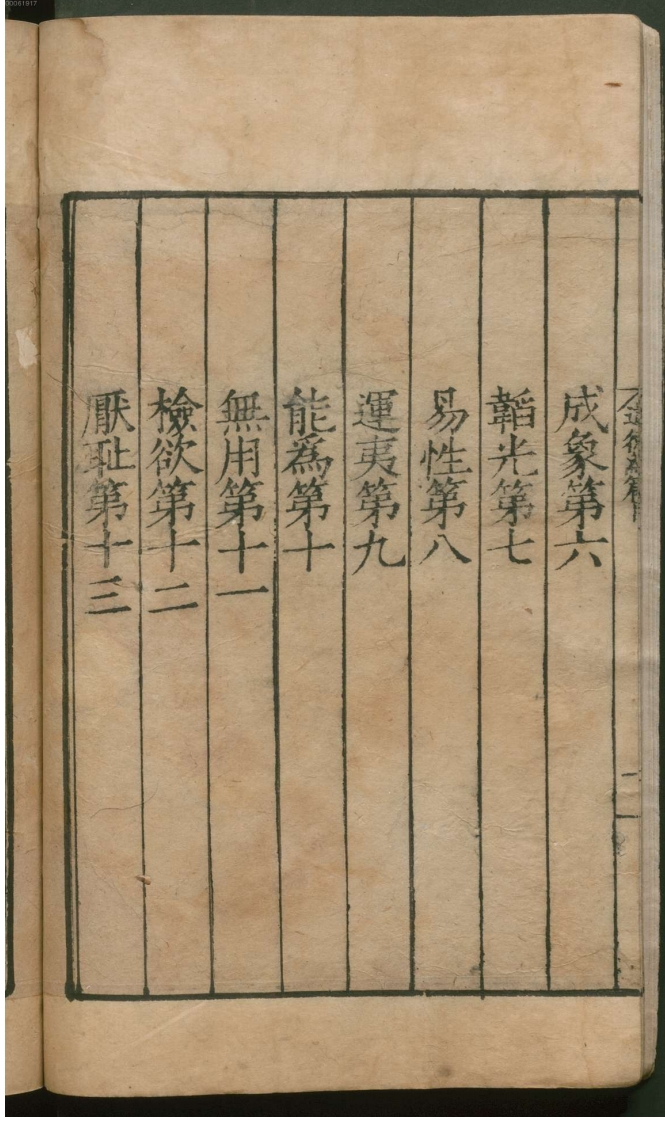 成象第六
韜光第七
易性第八
運夷第九
能爲第十
無用第十一
檢欲第十二
厭恥第十三
二
00061817